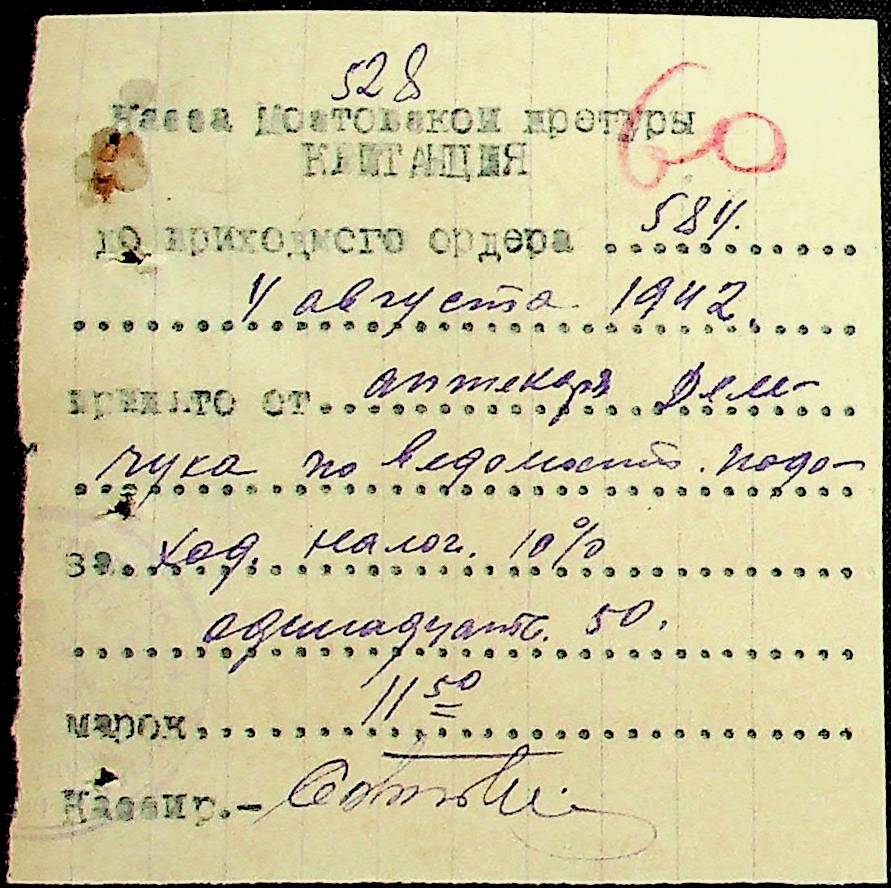 528
Касса Мостовской претуры
60
КВИТАНЦИЯ
до приходного ордера 584.
4 августа 1942.
принято от аптекаря Дем-
чука по ведомости. подо-
за ход. налог. 10%
одинадцать. 50.
марок 11 50
Кассир.-